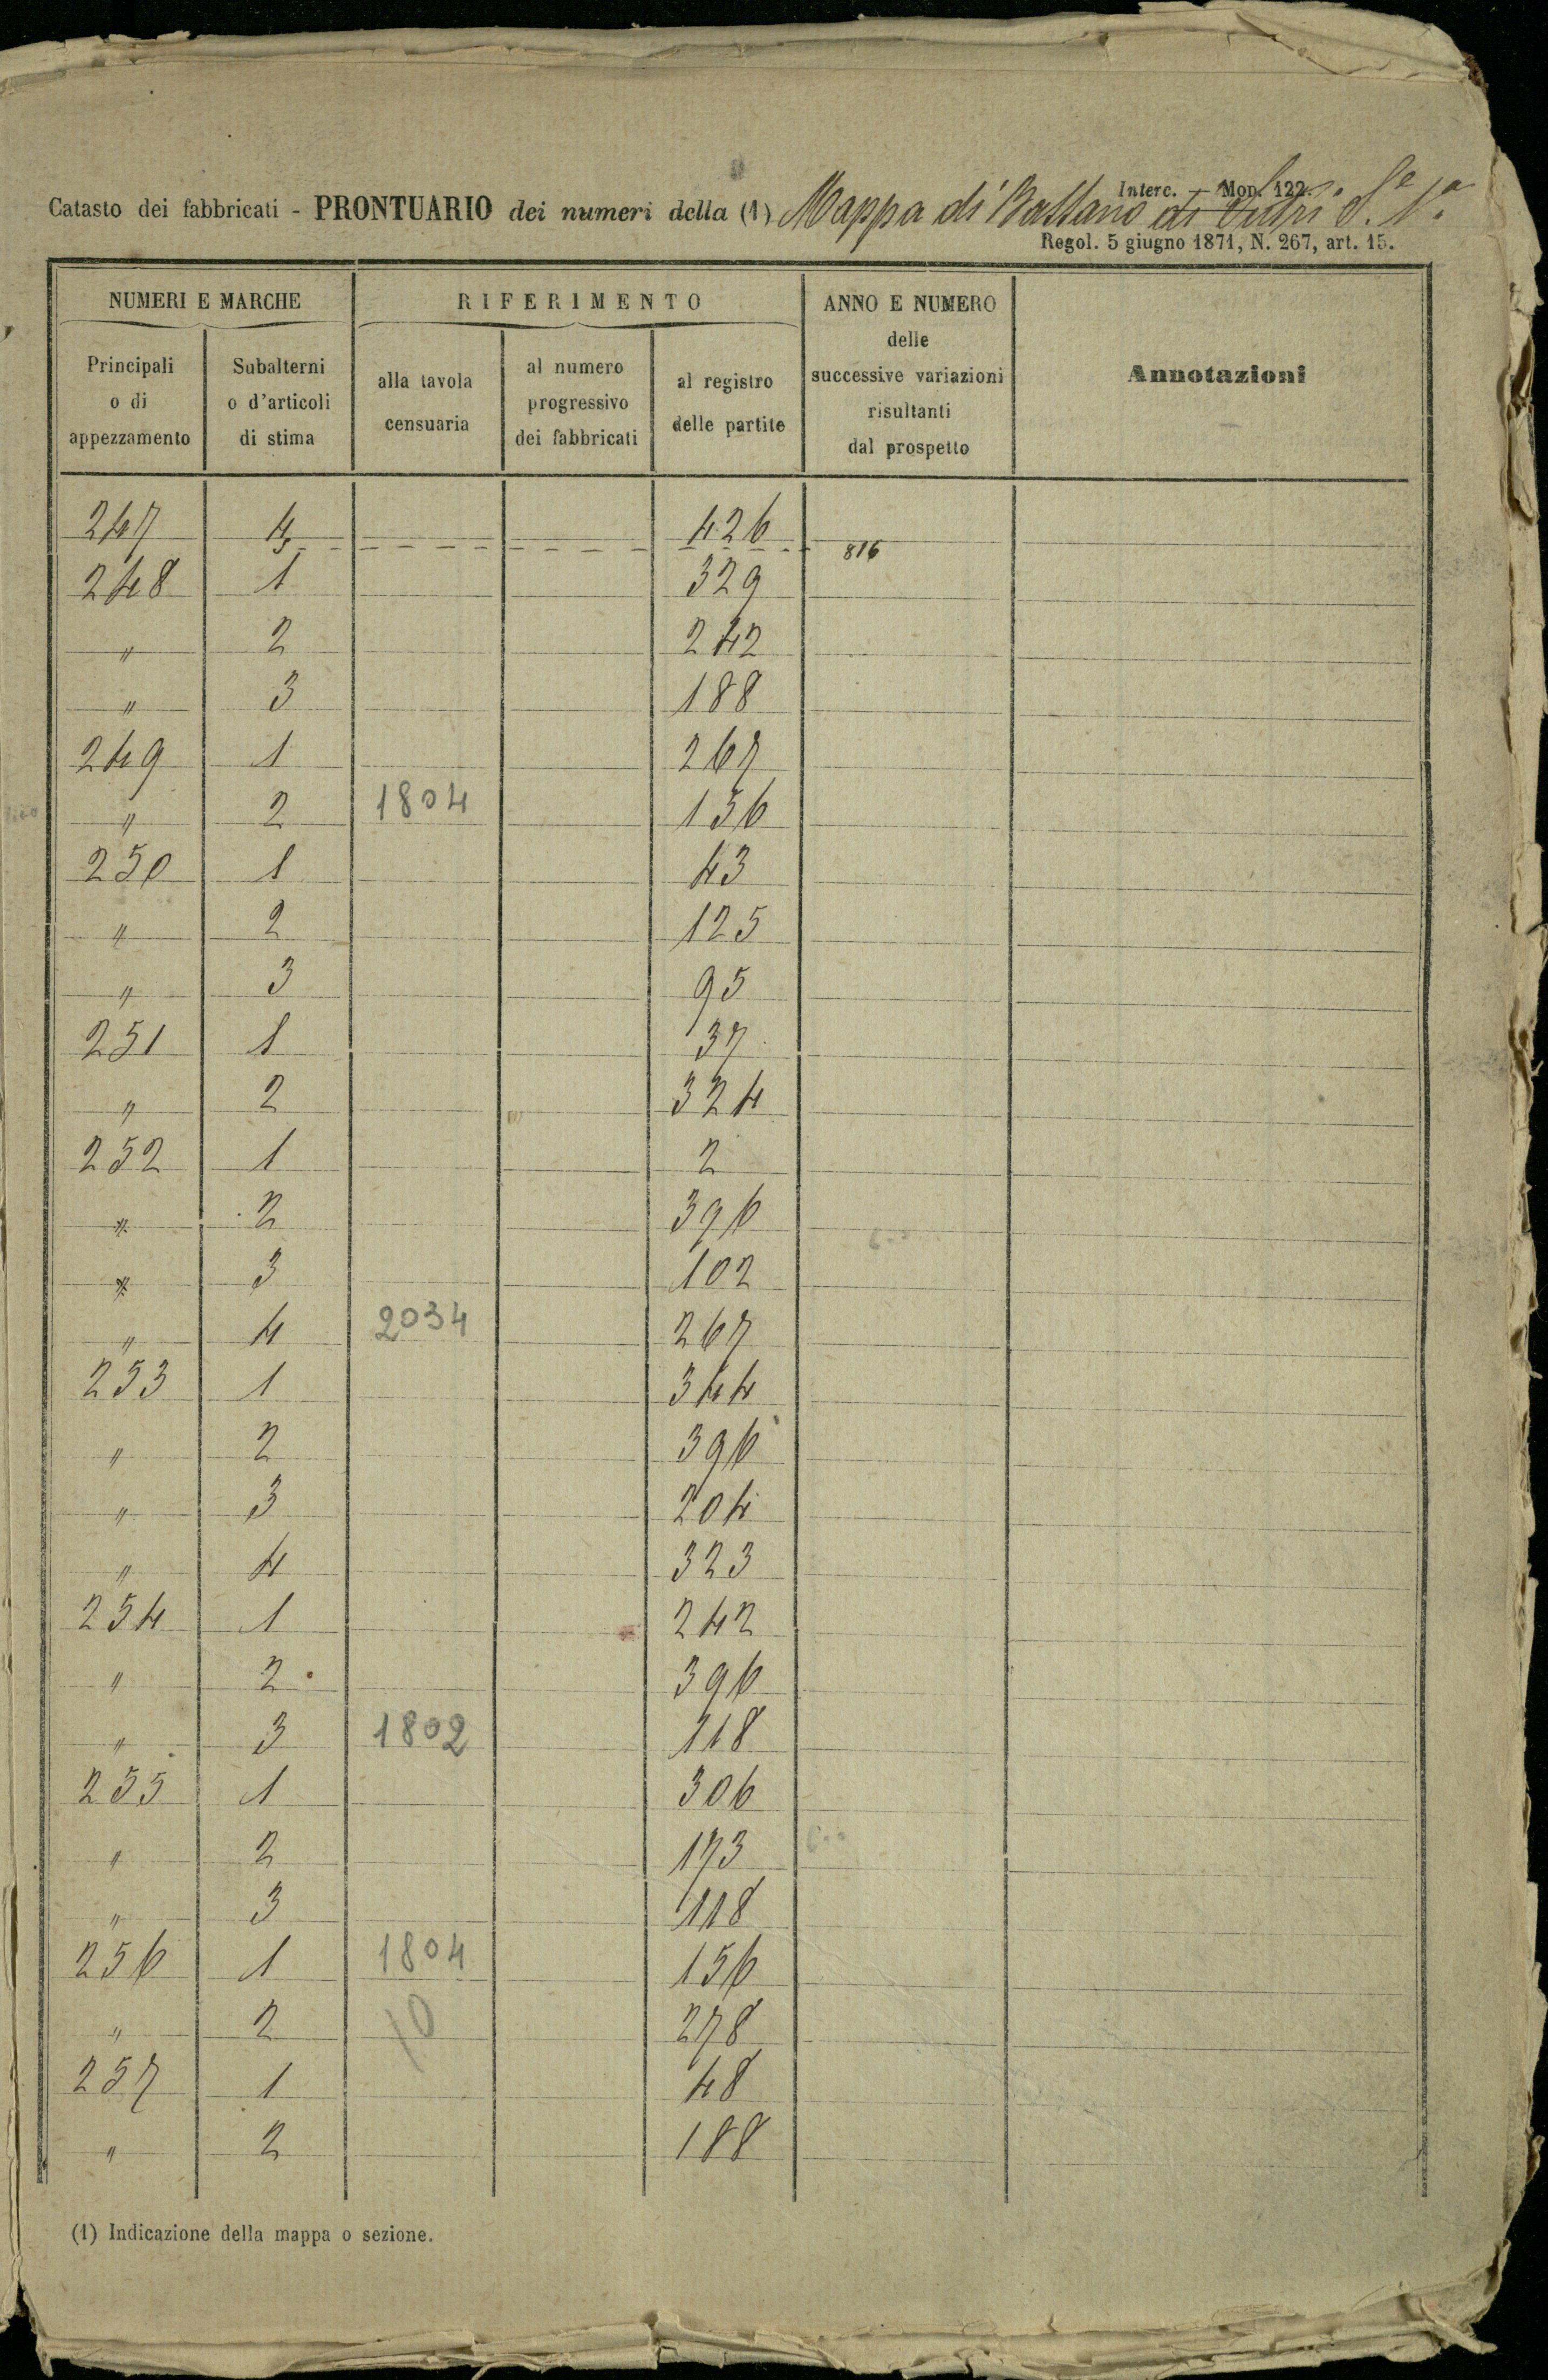 Interc. - Mod. 122.
Catasto dei fabbricati - PRONTUARIO dei numeri della (1) Mappa di Bassano di Sutri S.e 1.a
Regol. 5 giugno 1871, N. 267, art. 15.
NUMERI E MARCHE RIFERIMENTO ANNO E NUMERO delle successive variazioni risultanti dal prospetto Annotazioni
Principali o di appezzamento Subalterni o d'articoli di stima alla tavola censuaria al numero progressivo dei fabbricati al registro delle partite
247 4 426
5 816
248 1 329
" 2 242
" 3 188
249 1 267
" 2 1804 156
250 1 43
" 2 125
" 3 95
251 1 37
" 2 324
252 1 2
" 2 396
" 3 102
" 4 2034 267
253 1 344
" 2 396
" 3 204
" 4 323
254 1 242
" 2 396
" 3 1802 118
255 1 306
" 2 173
" 3 118
256 1 1804 156
" 2 10 278
257 1 48
" 2 188
(1) Indicazione della mappa o sezione.